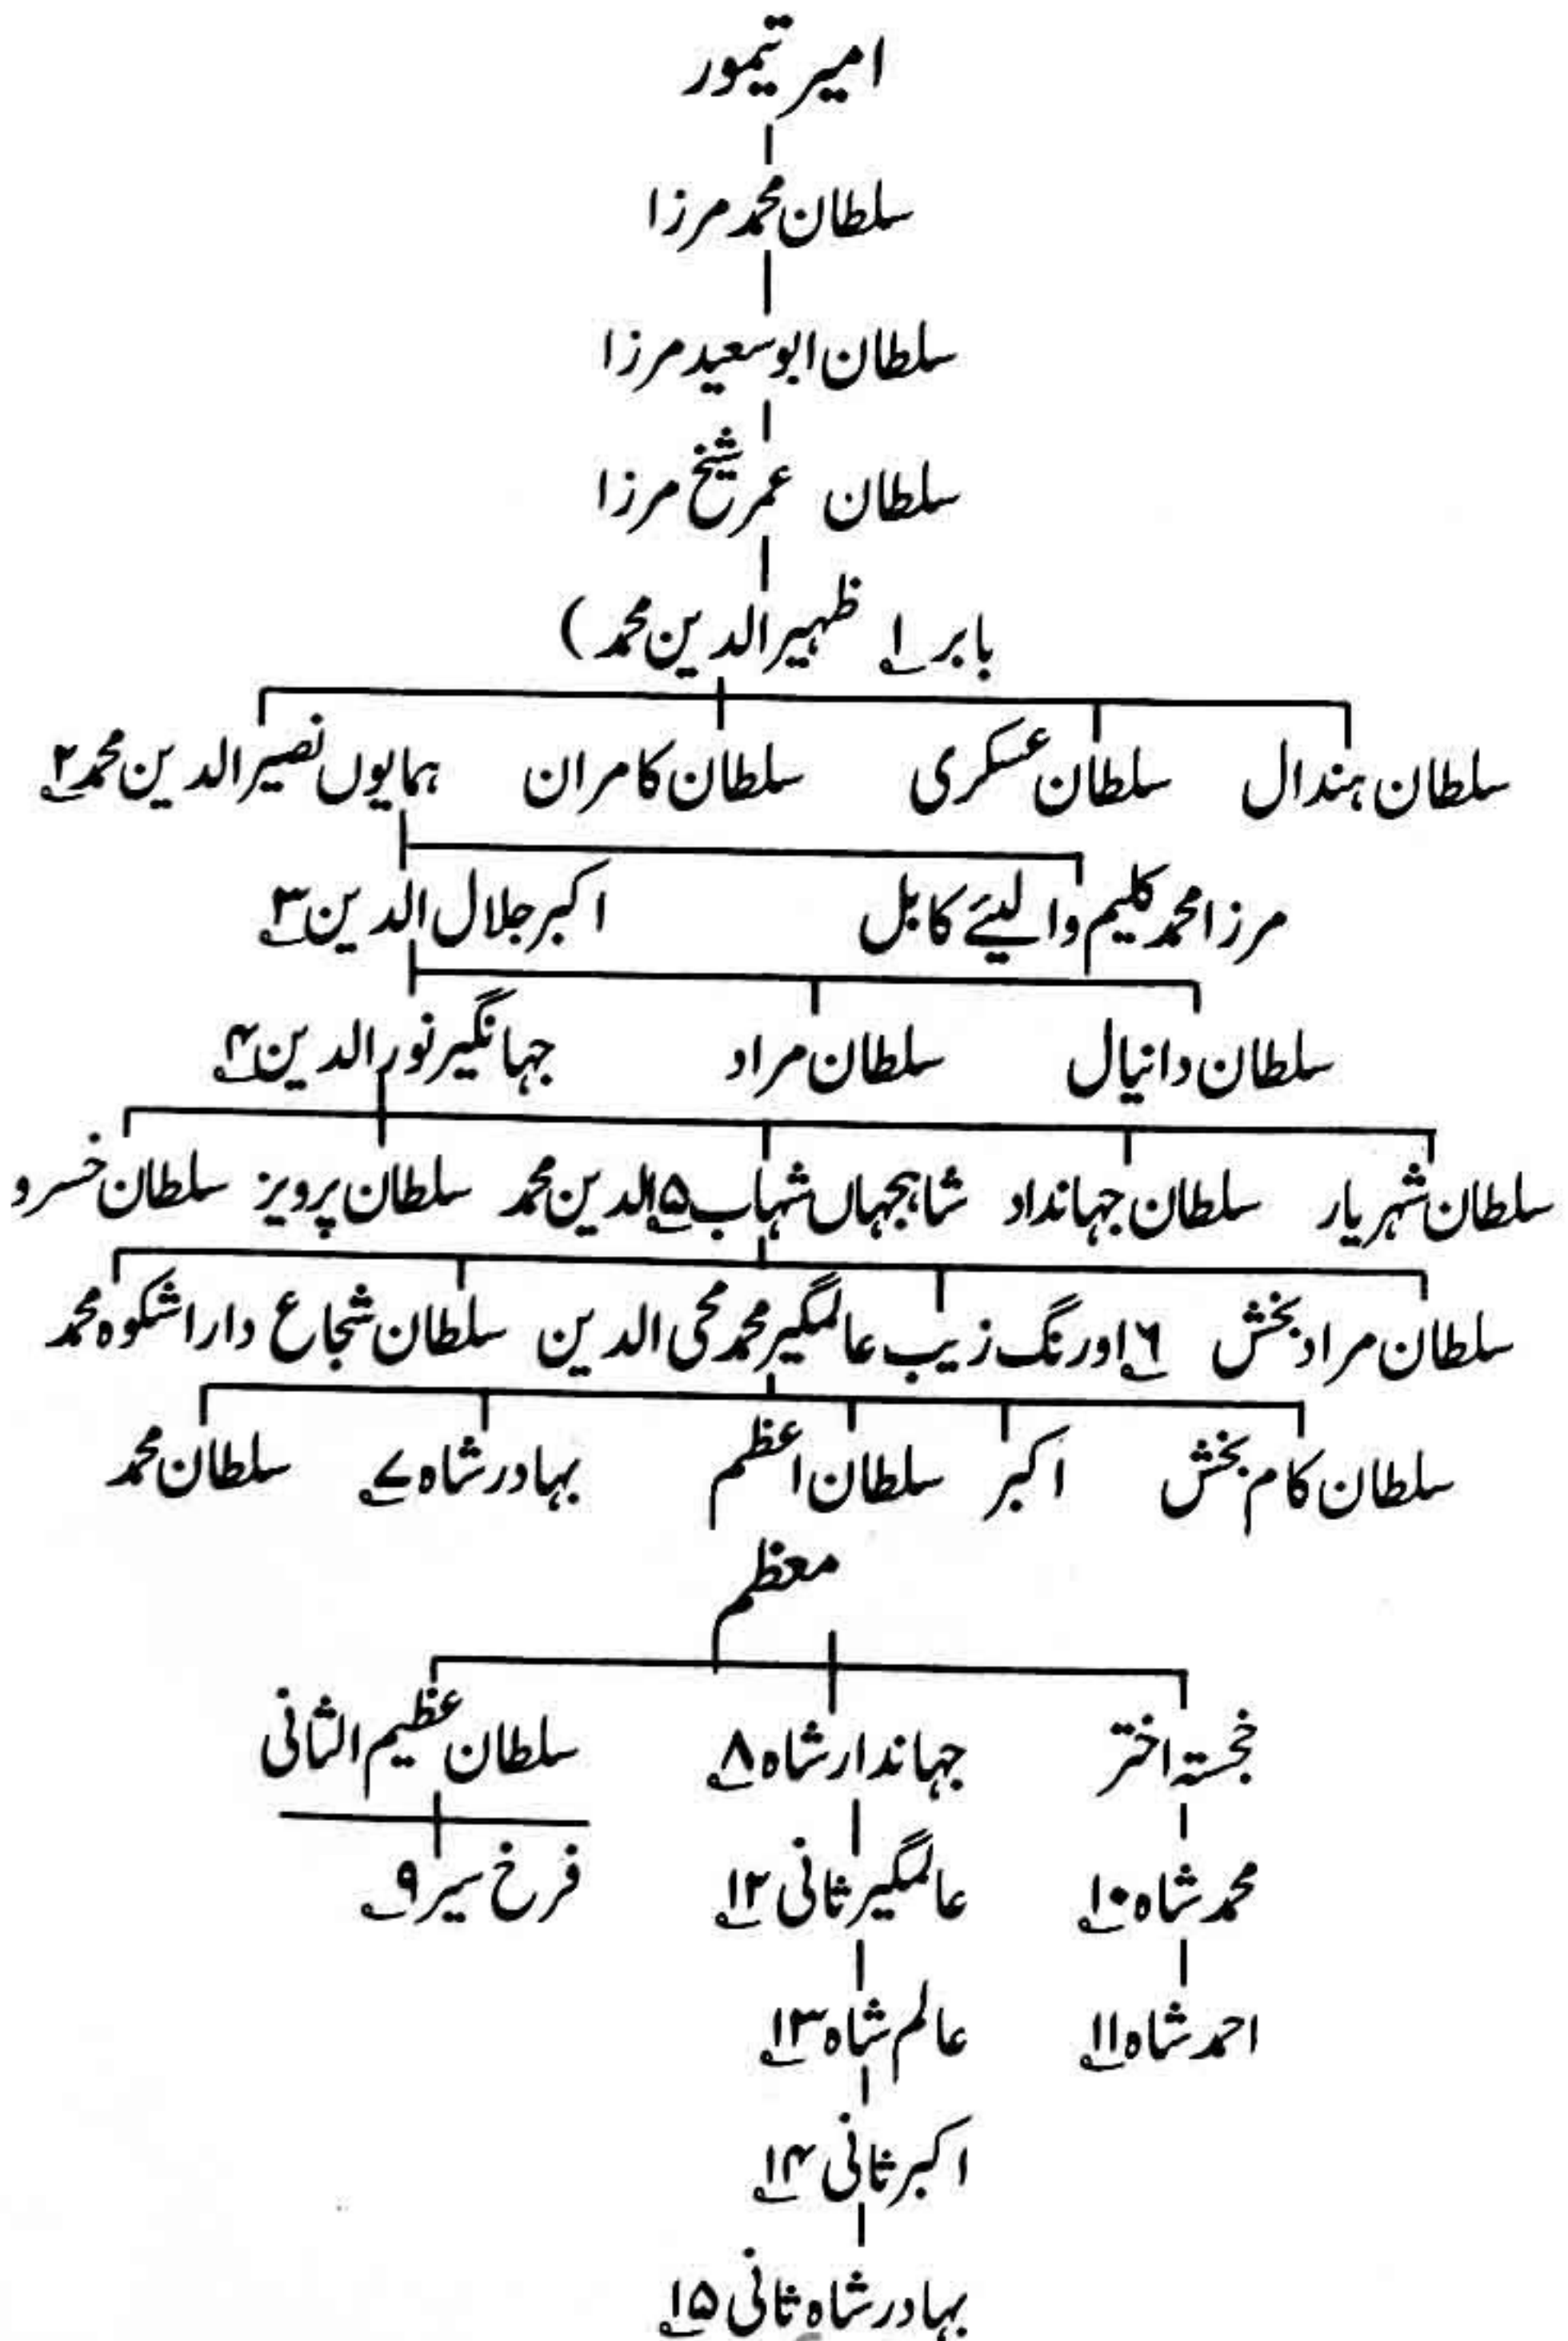 امیر تیمور
سلطان محمد مرزا
سلطان ابوسعید مرزا
سلطان عمر شیخ مرزا
بابر ۱ ظہیر الدین محمد)
سلطان ہندال سلطان عسکری سلطان کامران ہمایوں نصیر الدین محمد ۲
مرزا محمد کلیم والیئے کابل اکبر جلال الدین ۳
سلطان دانیال سلطان مراد جہانگیر نور الدین ۴
سلطان شہریار سلطان جہانداد شاہجہاں شہاب ۵ الدین محمد سلطان پرویز سلطان خسرو
سلطان مراد بخش ۶ اورنگ زیب عالمگیر محمد محی الدین سلطان شجاع داراشکوہ محمد
سلطان کام بخش اکبر سلطان اعظم بہادر شاہ ۷ سلطان محمد
معظم
خجستہ اختر جہاندار شاہ ۸ سلطان عظیم الثانی
محمد شاہ ۱۰ عالمگیر ثانی ۱۲ فرخ سیر ۹
احمد شاہ ۱۱ عالم شاہ ۱۳
اکبر ثانی ۱۴
بہادر شاہ ثانی ۱۵